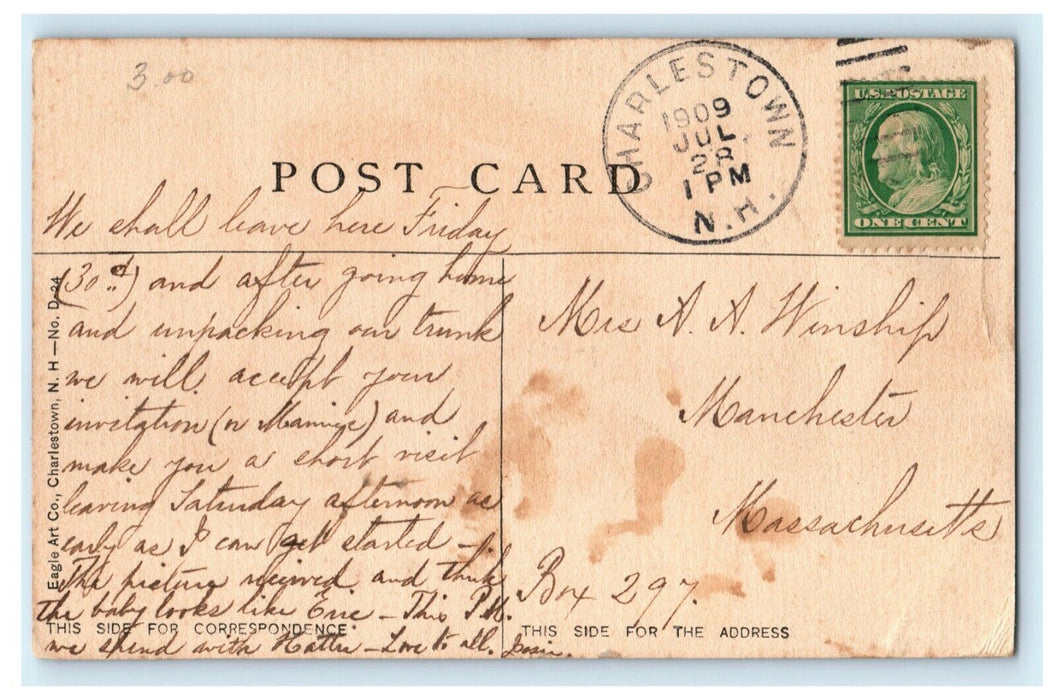 3.00
CHARLESTOWN
1909
JUL
28
1 PM
N.H.
U.S. POSTAGE
ONE CENT
POST CARD
We shall leave here Friday
(30th) and after going home
and unpacking our trunk
we will accept your
invitation (or Mamie's) and
make you a short visit
leaving Saturday afternoon as
early as I can get started –
The picture received and think
the baby looks like Erie – This P.M.
we spend with Hattie – Love to all.
Mrs A. A. Winship
Manchester
Massachusetts
Box 297.
Eagle Art Co., Charlestown, N. H—No. D-24
THIS SIDE FOR CORRESPONDENCE.
THIS SIDE FOR THE ADDRESS